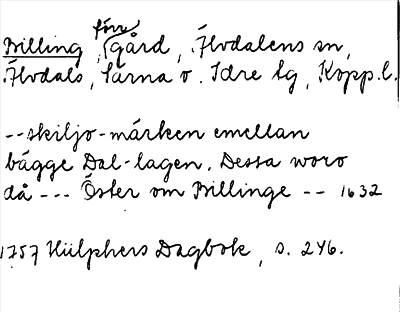 Billing förr gård, Älvdalens sn,
Älvdals, Särna o. Idre tg, Kopp.l.
--skiljo-märken emellan
bägge Dal-lagen. Dessa woro
då --- Öster om Billinge -- 1632
1757 Hülphers Dagbok, s. 246.